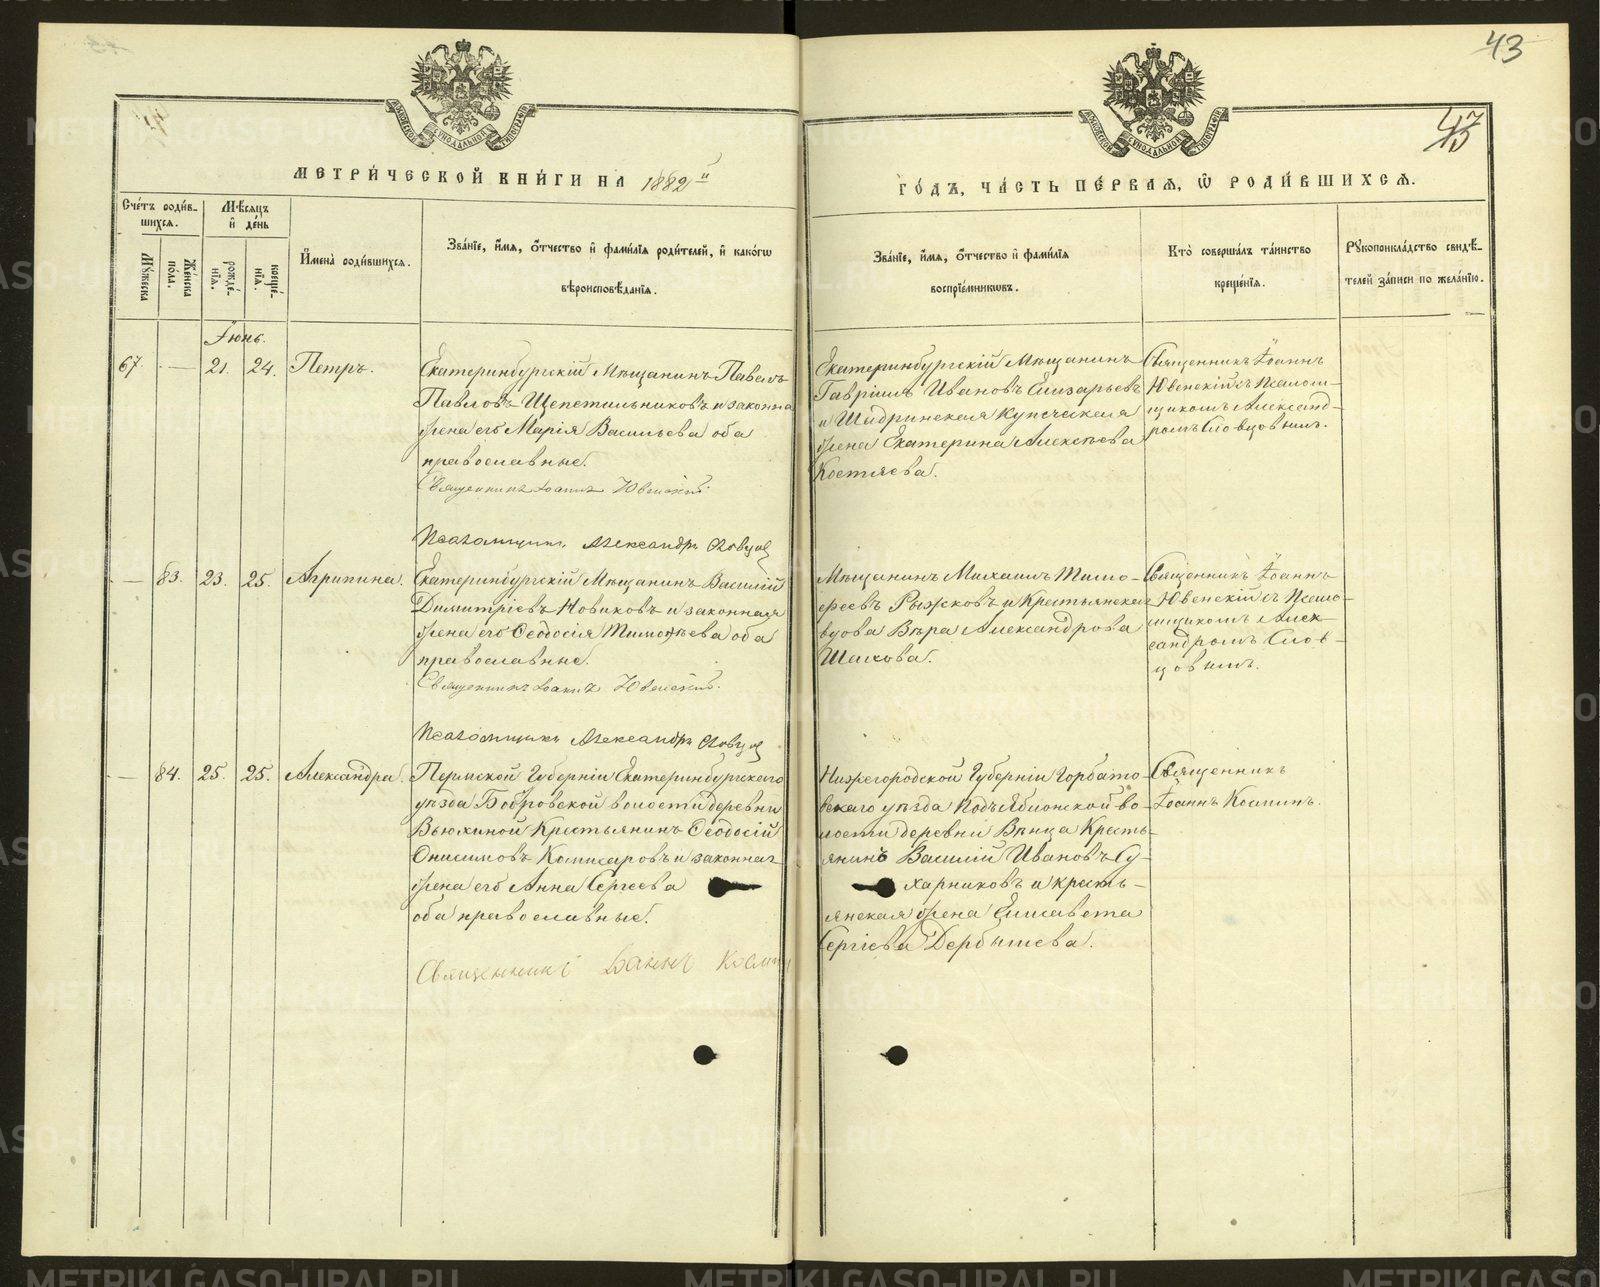 43
47
МЕТРИ́ЧЕСКОЙ КНИ́ГИ НА 1882й
ГО́ДЪ, ЧА́СТЬ ПЕ́РВАЯ, Ѿ РОДИ́ВШИХСЯ.
Сче́тъ роди́в-
шихся.
Му́жеска
Же́нска
по́ла.
Мѣ́сяцъ
и҆ де́нь
рожде́-
нїя.
креще́-
нїя.
И҆мена̀ роди́вшихся.
Зва́нїе, и҆́мя, ѻ҆́тчество и҆ фами́лїя роди́телей, и҆ како́гѡ
вѣроисповѣ́данїя.
Зва́нїе, и҆́мя, ѻ҆́тчество и҆ фами́лїя
воспрїе́мникѡвъ.
Кто̀ соверша́лъ та́инство
креще́нїя.
Рꙋкоприкла́дство свидѣ́-
телей за́писи по жела́нїю.
Іюнь.
67.
21.
24.
Петръ.
Екатеринбургскій Мѣщанинъ Павелъ
Павловъ Щепетильниковъ и законная
жена его Марія Васильева оба
православные.
Священникъ Іоаннъ Ювенскій.
Псаломщикъ Александръ Словцов
Екатеринбургскій Мѣщанинъ
Гавріилъ Ивановъ Елизарьевъ
и Шадринская купеческая
жена Екатерина Алексѣева
Костяева.
Священникъ Іоаннъ
Ювенскій съ Псалом-
щикомъ Александ-
ромъ Словцовымъ.
83.
23.
25.
Агрипина.
Екатеринбургскій Мѣщанинъ Василій
Димитріевъ Новиковъ и законная
жена его Ѳеодосія Тимоѳѣева оба
православные.
Священникъ Іоаннъ Ювенскій.
Псаломщикъ Александръ Словцов
Мѣщанинъ Михаилъ Тимо-
феевъ Рыжковъ и Крестьянская
вдова Вѣра Александрова
Шилкова.
Священникъ Іоаннъ
Ювенскій съ Псало-
мщикомъ Алек-
сандромъ Слов-
цовымъ.
84.
25.
25.
Александра.
Пермской Губерніи Екатеринбургскаго
уѣзда Бобровской волости деревни
Вьюхиной Крестьянинъ Ѳеодосій
Онисимовъ Комисаровъ и законная
жена его Анна Сергѣева
оба православные.
Священникъ Іоаннъ Космин
Нижегородской Губерніи Горбато-
вскаго уѣзда Подъяблонской во-
лости деревни Вѣнца Кресть-
янинъ Василій Ивановъ Су-
харниковъ и кресть-
янская жена Елисавета
Сергіева Дербышева.
Священникъ
Іоаннъ Косминъ.
METRIKI.GASO-URAL.RU